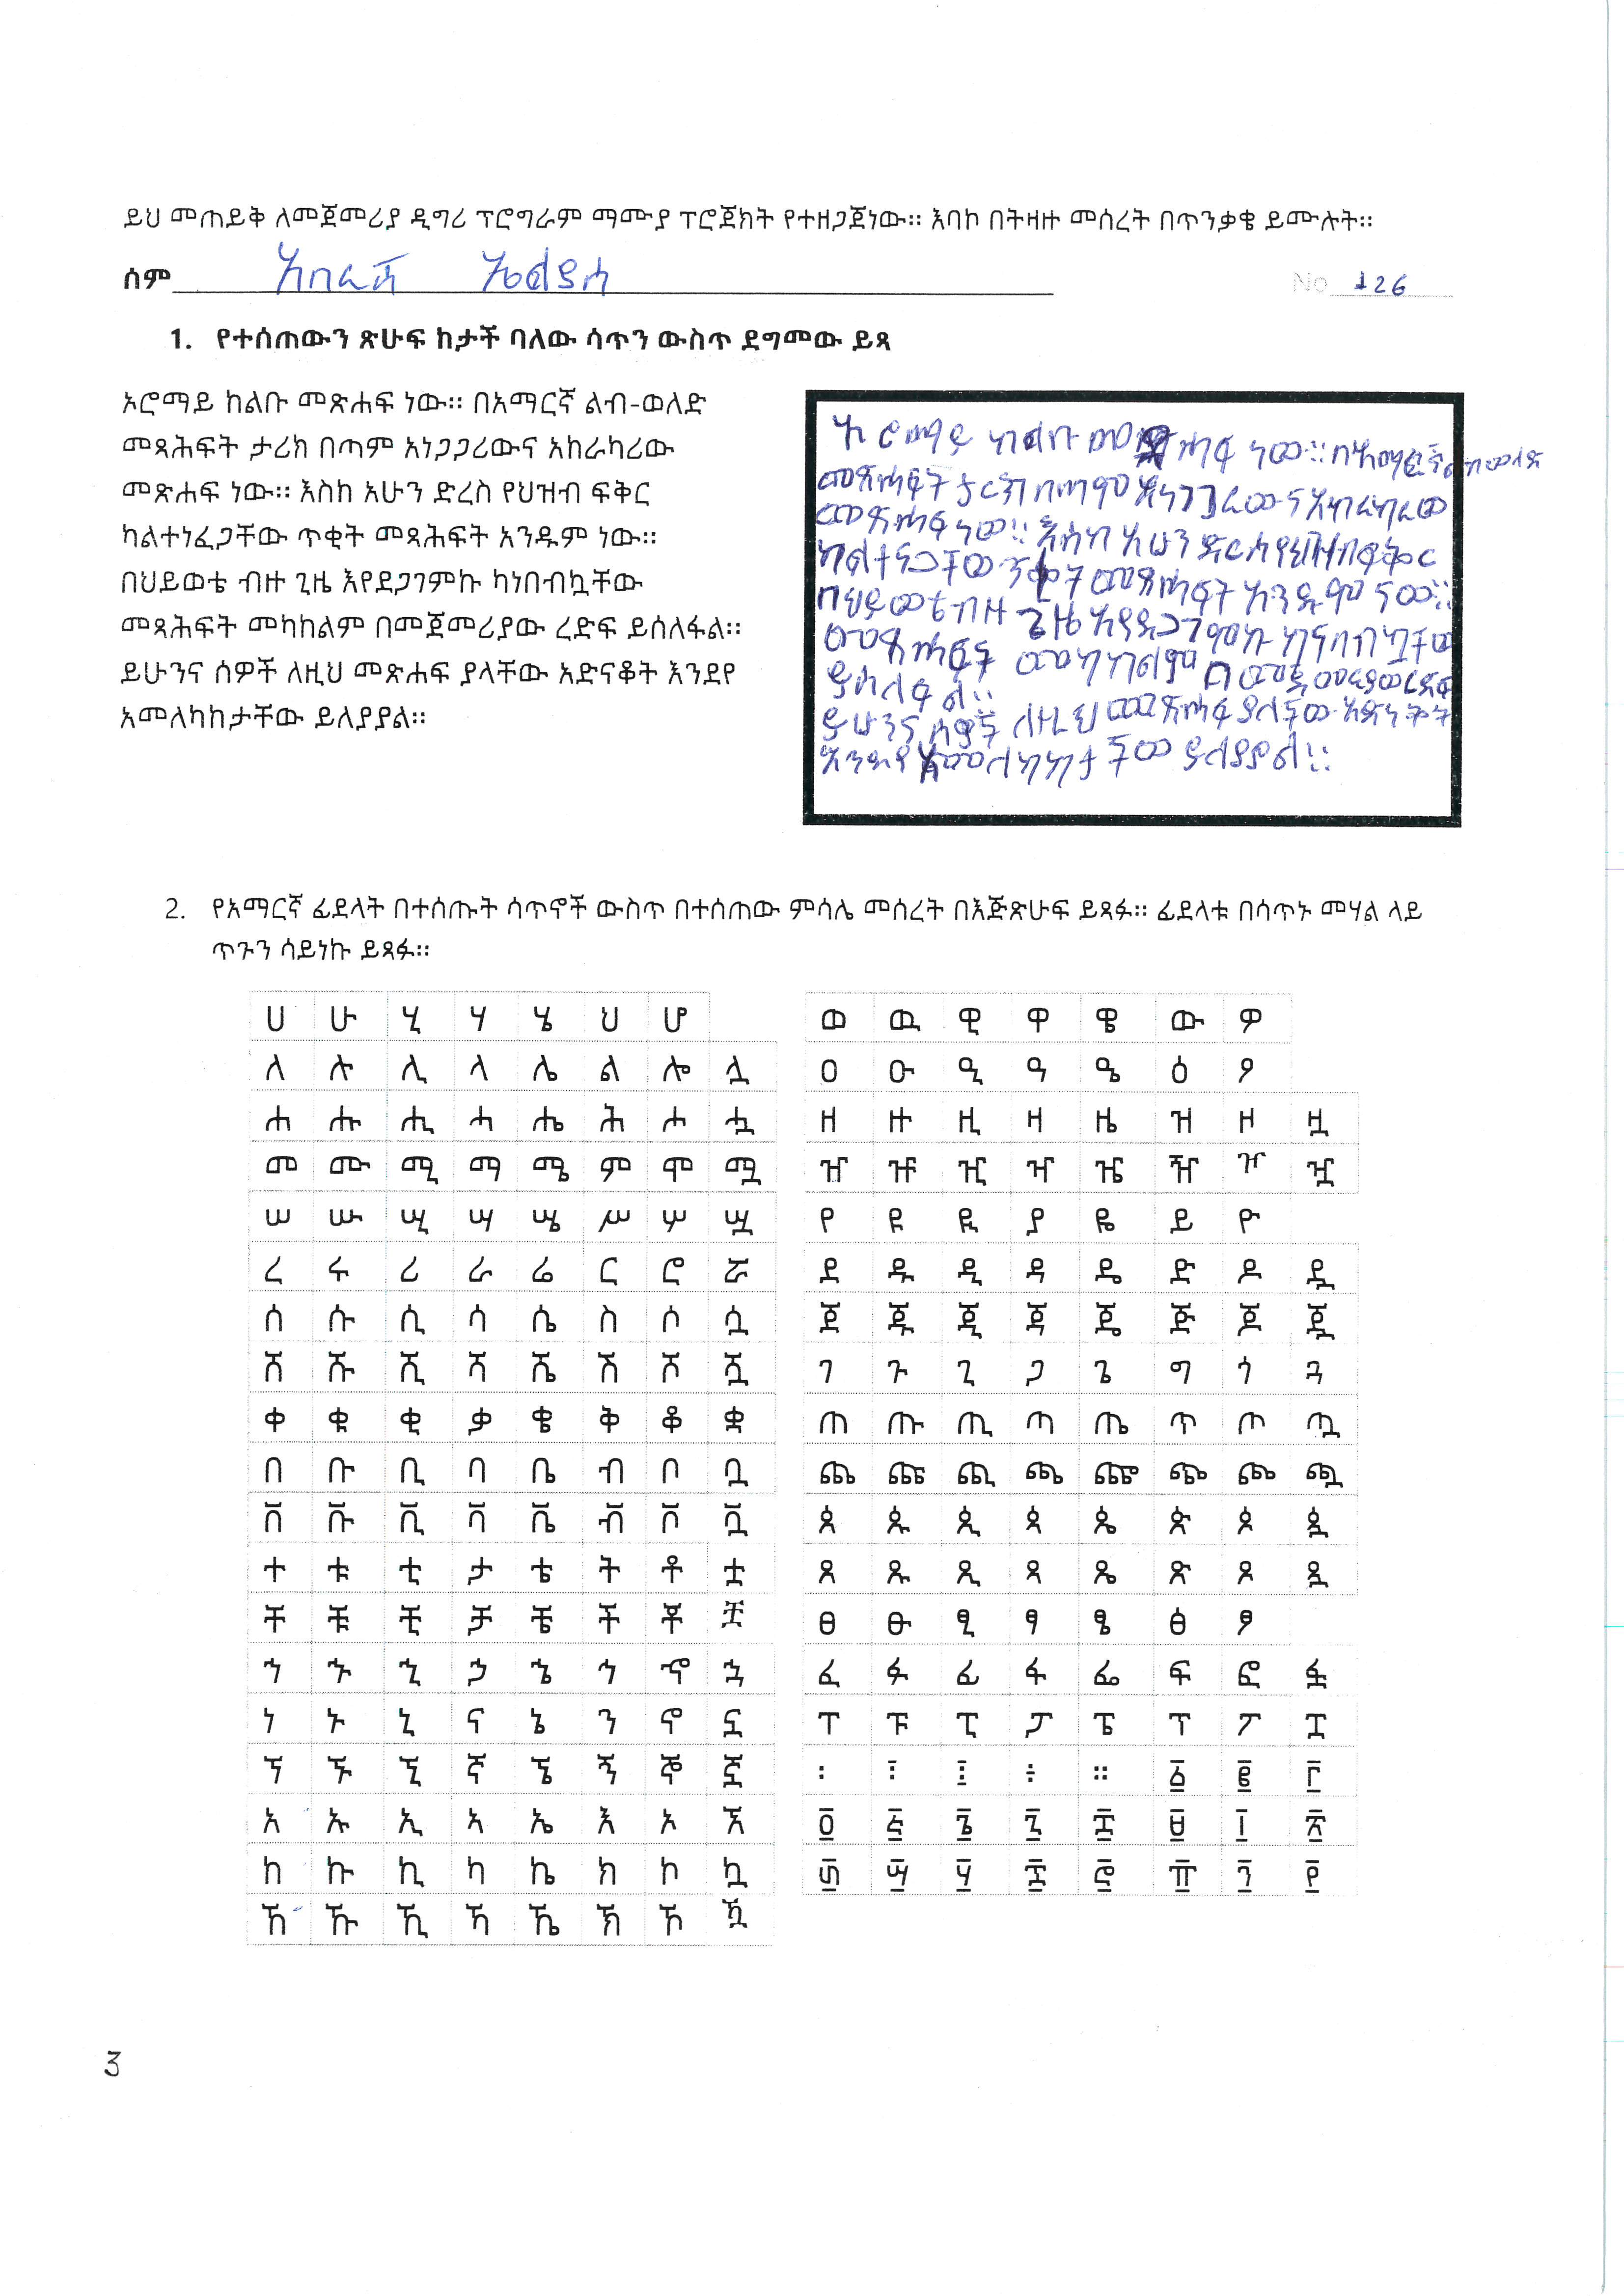 ይህ መጠይቅ ለመጀመሪያ ዲግሪ ፕሮግራም ማሙያ ፕሮጀክት የተዘጋጀነው። እባኮ በትዛዙ መሰረት በጥንቃቄ ይሙሉት።
ሰም
No 126
1. የተሰጠውን ጽሁፍ ከታች ባለው ሳጥን ውስጥ ደግመው ይጻ
ኦሮማይ ከልቡ መጽሐፍ ነው። በአማርኛ ልብ-ወለድ
መጻሕፍት ታሪክ በጣም አነጋጋሪውና አከራካሪው
መጽሐፍ ነው። እስከ አሁን ድረስ የህዝብ ፍቅር
ካልተነፈጋቸው ጥቂት መጻሕፍት አንዱም ነው።
በህይወቴ ብዙ ጊዜ እየደጋገምኩ ካነበብኳቸው
መጻሕፍት መካከልም በመጀመሪያው ረድፍ ይሰለፋል።
ይሁንና ሰዎች ለዚህ መጽሐፍ ያላቸው አድናቆት እንደየ
አመለካከታቸው ይለያያል።
ኦሮማይ ከልቡ መ ሐፍ ነው። በአማርኛ ልብ ወለድ
መጻሕፍት ታሪክ በጣም አነጋጋሪውና አከራካሪው
መጽሐፍ ነው። እስከ አሁን ድርስ የህዝብ ፍቅር
መጻሕፍት አንዱም ነው።
በህይወቴ ብዙ ጊዜ
መጻሕፍት መካከልም
ይሰለፋል።
ይሁንና ሰዎች ለዚህ መጽሐፍ ያላቸው አድናቆት
እንደየ አመለካከታቸው ይለያያል።
2. የአማርኛ ፊደላት በተሰጡት ሳጥኖች ውስጥ በተሰጠው ምሳሌ መሰረት በእጅጽሁፍ ይጻፉ። ፊደላቱ በሳጥኑ መሃል ላይ
ጥጉን ሳይነኩ ይጻፉ።
ሀ ሁ ሂ ሃ ሄ ህ ሆ
ለ ሉ ሊ ላ ሌ ል ሎ ሏ
ሐ ሑ ሒ ሓ ሔ ሕ ሖ ሗ
መ ሙ ሚ ማ ሜ ም ሞ ሟ
ሠ ሡ ሢ ሣ ሤ ሥ ሦ ሧ
ረ ሩ ሪ ራ ሬ ር ሮ ሯ
ሰ ሱ ሲ ሳ ሴ ስ ሶ ሷ
ሸ ሹ ሺ ሻ ሼ ሽ ሾ ሿ
ቀ ቁ ቂ ቃ ቄ ቅ ቆ ቋ
በ ቡ ቢ ባ ቤ ብ ቦ ቧ
ቨ ቩ ቪ ቫ ቬ ቭ ቮ ቯ
ተ ቱ ቲ ታ ቴ ት ቶ ቷ
ቸ ቹ ቺ ቻ ቼ ች ቾ ቿ
ኀ ኁ ኂ ኃ ኄ ኅ ኆ ኋ
ነ ኑ ኒ ና ኔ ን ኖ ኗ
ኘ ኙ ኚ ኛ ኜ ኝ ኞ ኟ
አ ኡ ኢ ኣ ኤ እ ኦ ኧ
ከ ኩ ኪ ካ ኬ ክ ኮ ኳ
ኸ ኹ ኺ ኻ ኼ ኽ ኾ ዃ
ወ ዉ ዊ ዋ ዌ ው ዎ
ዐ ዑ ዒ ዓ ዔ ዕ ዖ
ዘ ዙ ዚ ዛ ዜ ዝ ዞ ዟ
ዠ ዡ ዢ ዣ ዤ ዥ ዦ ዧ
የ ዩ ዪ ያ ዬ ይ ዮ
ደ ዱ ዲ ዳ ዴ ድ ዶ ዷ
ጀ ጁ ጂ ጃ ጄ ጅ ጆ ጇ
ገ ጉ ጊ ጋ ጌ ግ ጎ ጓ
ጠ ጡ ጢ ጣ ጤ ጥ ጦ ጧ
ጨ ጩ ጪ ጫ ጬ ጭ ጮ ጯ
ጰ ጱ ጲ ጳ ጴ ጵ ጶ ጷ
ጸ ጹ ጺ ጻ ጼ ጽ ጾ ጿ
ፀ ፁ ፂ ፃ ፄ ፅ ፆ
ፈ ፉ ፊ ፋ ፌ ፍ ፎ ፏ
ፐ ፑ ፒ ፓ ፔ ፕ ፖ ፗ
፡ ፣ ፤ ÷ ። ፩ ፪ ፫
፬ ፭ ፮ ፯ ፰ ፱ ፲ ፳
፴ ፵ ፶ ፷ ፸ ፹ ፺ ፻
3